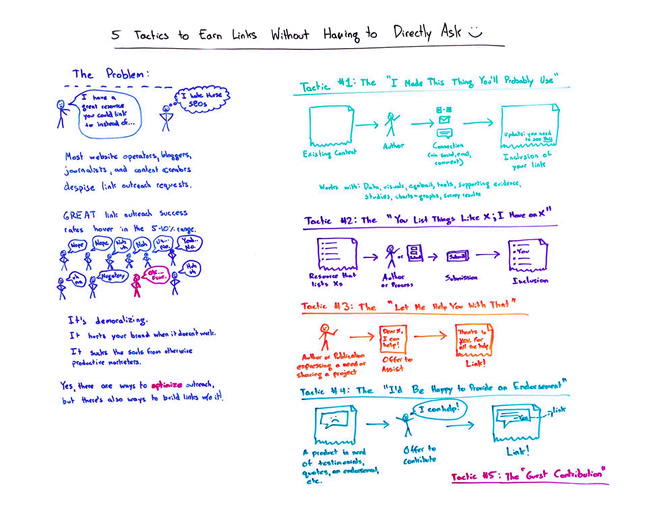 5 Tactics to Earn Links Without Having to Directly Ask
The Problem:
I have a
great resource
you could link
to instead of...
I hate those
SEOs
Most website operators, bloggers,
journalists, and content creators
despise link outreach requests.
GREAT link outreach success
rates hover in the 5-10% range.
Nope
Nope
Nuh
uh
Nah
Uh..
No.
Yeah..
No.
uh
no
Negatory
OK...
Sure.
Nuh
uh
It's demoralizing.
It hurts your brand when it doesn't work.
It sucks the souls from otherwise
productive marketers.
Yes, there are ways to optimize outreach,
but there's also ways to build links w/o it!
Tactic #1: The "I Made This Thing You'll Probably Use"
Existing Content
Author
Connection
(via social, email,
comment)
Update: you need
to see this
Inclusion of
your link
Works with: Data, visuals, tools, supporting evidence,
studies, charts+graphs, survey results
Tactic #2: The "You List Things Like X; I Have an X"
Resource that
lists Xs
Author
or Process
or
Submit
Submission
You
Inclusion
Tactic #3: The "Let Me Help You With That"
Author or Publication
expressing a need or
sharing a project
Dear X,
I can
help!
Offer to
Assist
Thanks to
you for
all the help!
Link!
Tactic #4: The "I'd Be Happy to Provide an Endorsement"
A product in need
of testimonials,
quotes, an endorsement,
etc.
I can help!
Offer to
contribute
You
link
Link!
Tactic #5: The "Guest Contribution"